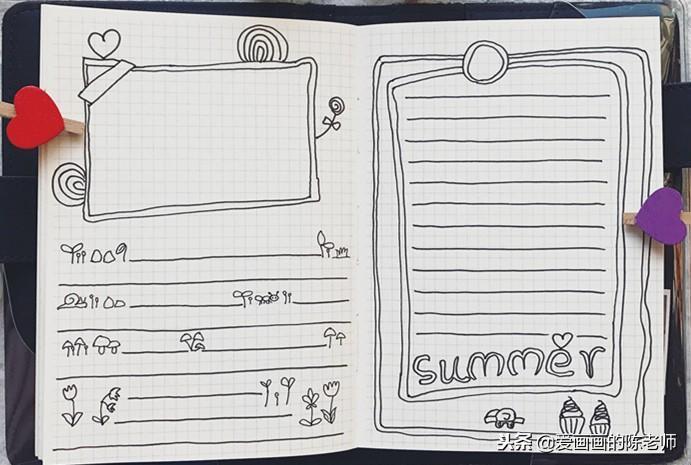 summer
头条 @爱画画的陈老师